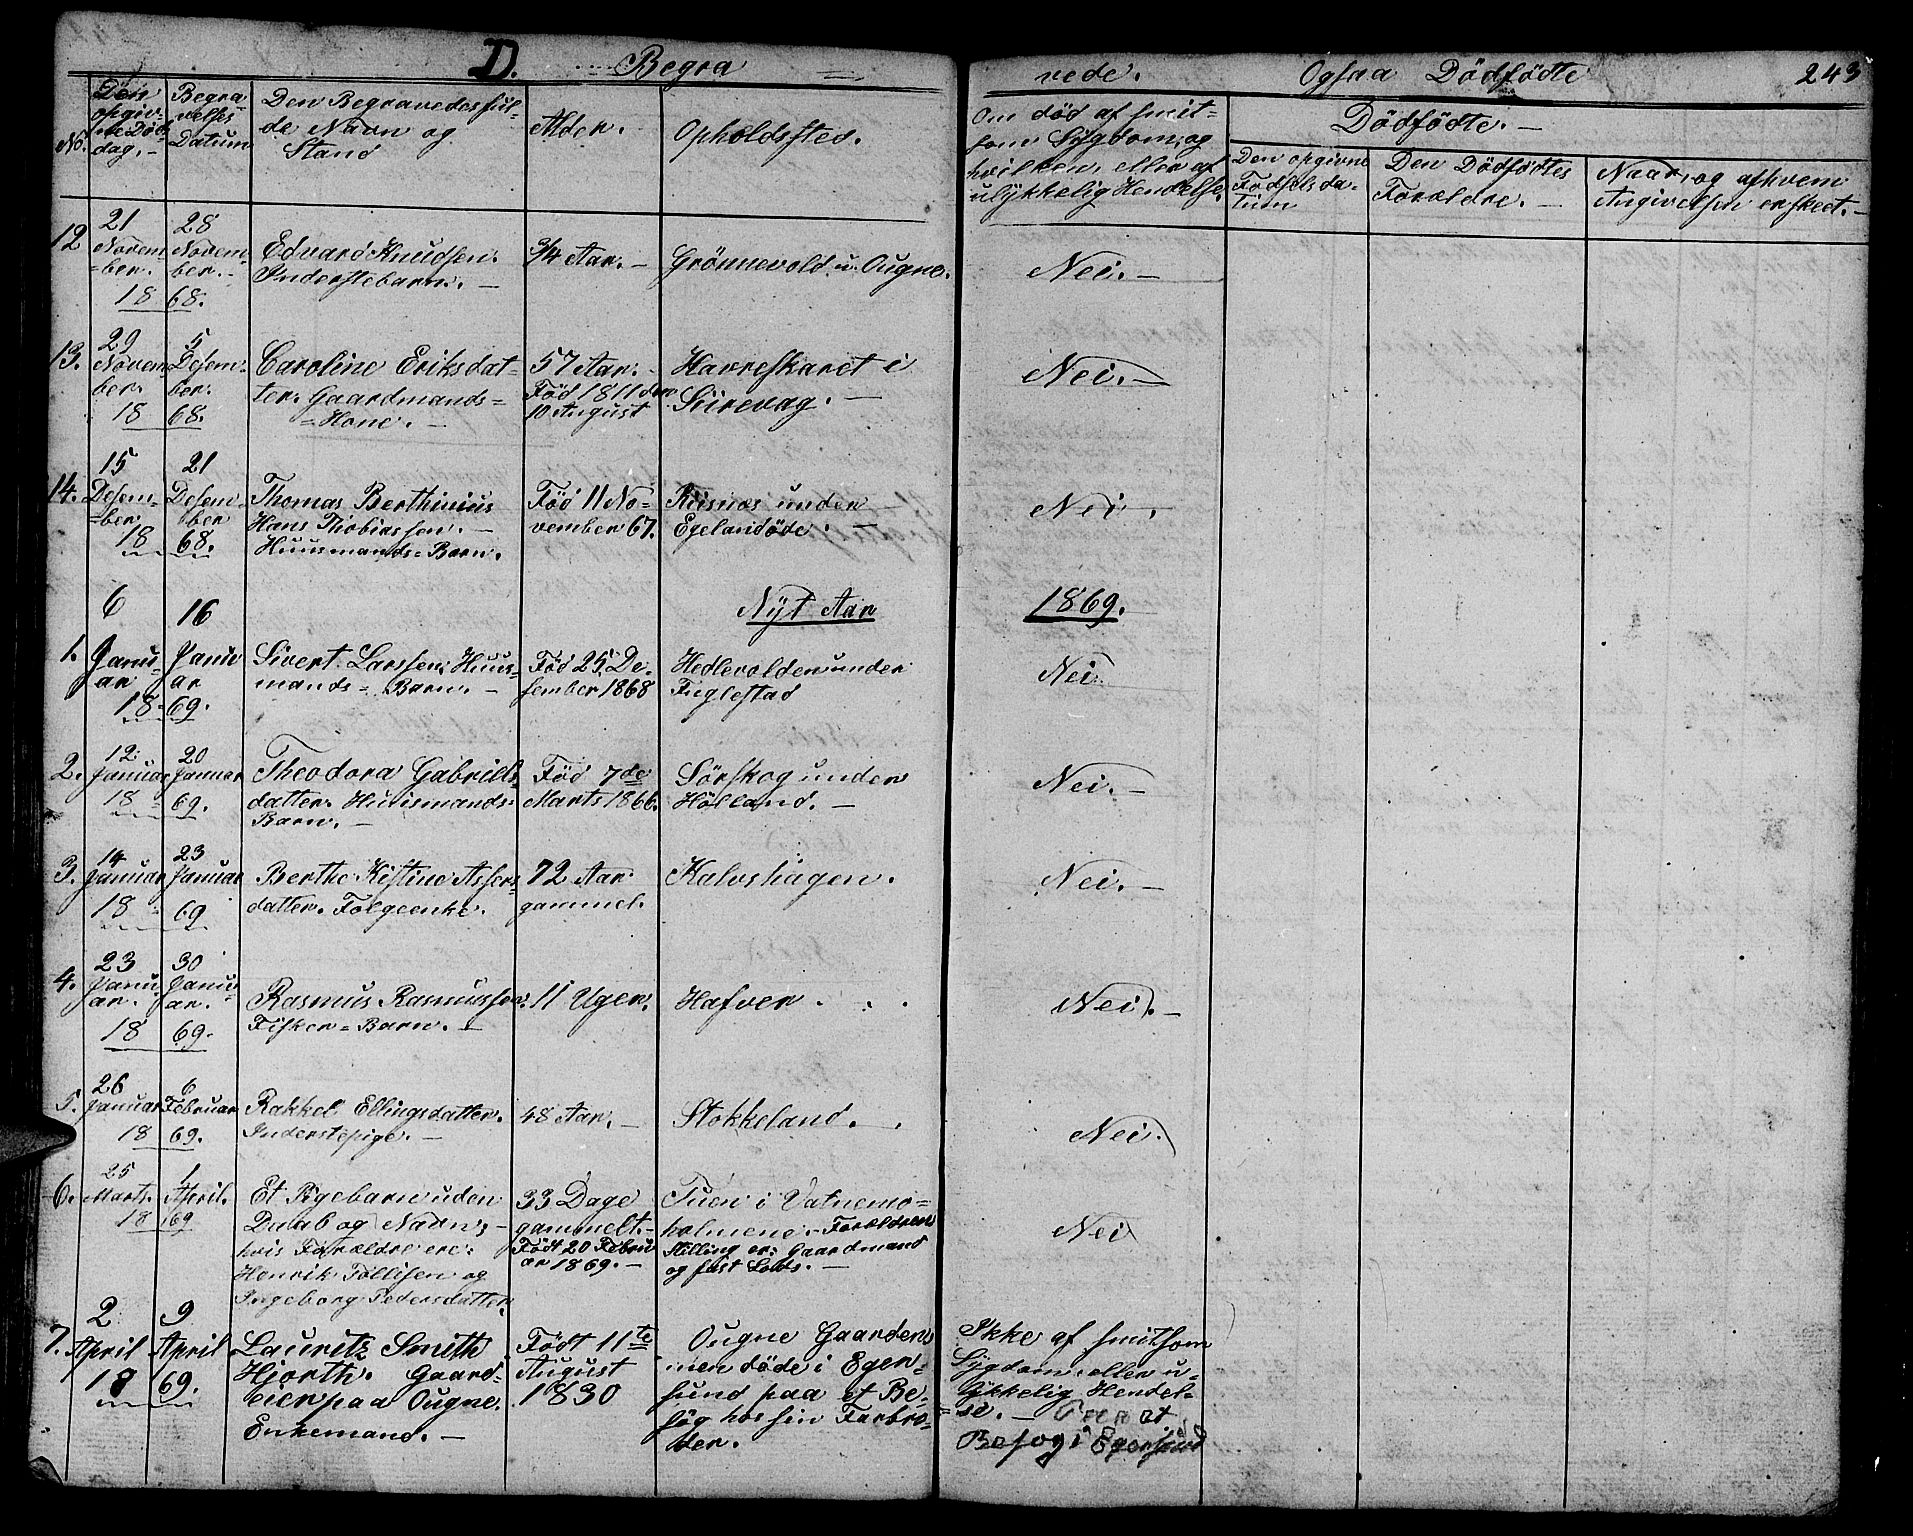 D. Begra
vede. Ogsaa Dødfødte 243
No.
Den opgiv-
ne Døds
dag. -
Begra
velses
Datum
Den Begravedes ful-
de Navn og
Stand
Alder. -
Opholdssted.
Om død af smit-
som Sygdom, og
hvilken, eller af
ulykkelig Hendelse.
Dødfødte. -
Den opgivne
Fødselsda-
tum
Den Dødfødtes
Forældre. -
Naar, og af hvem
Angivelsen er skeet. -
12
21
Novem
=ber. -
18
28
Novem-
ber. -
68.
Edvard Knudsen.
Inderstebarn. -
3/4 Aar. -
Grønnevold u. Ougne.
Nei. -
13.
29
Novem
ber.
18
5
Desem-
ber.
68.
Caroline Eriksdat-
ter. Gaardmands=
=Kone. -
57 Aar. -
Fød 1811 den
10 August
Havreskaret i
Sirevag. -
Nei. -
14.
15
Desem-
=ber
18
21
Desem-
ber
68.
Thomas Berthinius
Hans Thobiassen. -
Huusmands=Barn.
Fød 11 No-
vember 67.
Rusnæs under
Egelandøde. -
Nei.
Nyt Aar
1869.
1.
6
Janu-
ar
18
16
Janu
ar
69.
Sivert Larssen. Huus-
mands= Barn. -
Fød 25 De-
sember 1868
Hedlevolden under
Fuglestad
Nei.
2.
12
Januar
18
20
Januar
69.
Theodora Gabriels
datter. Huusmands=
Barn. -
Fød 7de
Marts 1866.
Sørskog under
Hølland. -
Nei. -
3.
14
Januar
18
23
Januar
69
Berthe Kistine Assers-
datter. Følgeenke.
72 Aar
gammel.
Kalvshagen.
Nei. -
4.
23
Janu
ar.
18
30
Janu-
ar.
69.
Rasmus Rasmussen.
Fisker=Barn. -
11 Uger.
Hafver . . .
Nei. -
5.
26
Januar
18
6
Februar
69.
Rakkel Ellingsdatter.
Inderstepige. -
48 Aar. -
Stokkeland. .
Nei.
6.
25
Marts.
18
1
April.
69
Et Pigebarn uden
Daab og Navn, -
hvis Forældre ere:
Henrik Tollisen og
Ingeborg Pedersdatter.
33 Dage
gammelt. -
Født 20 Febru
ar 1869. -
Tuen i Vatnemo=
holmene. - Forældren
Stilling er: Gaardmand
og fast Lods. -
Nei
7.
2
April
18
9
April
69.
Lauritz Smith
Hjorth. Gaard-
eier paa Ougne.
Enkemand. -
Født 11te
August
1830
Ougne Gaarden
men døde i Eger=
sund paa et Be=
søg hos sin Farbro=
der.
Ikke af smitsom
Sygdom, eller u-
lykkelig Hendel-
se. - et
Besøg i Egersund